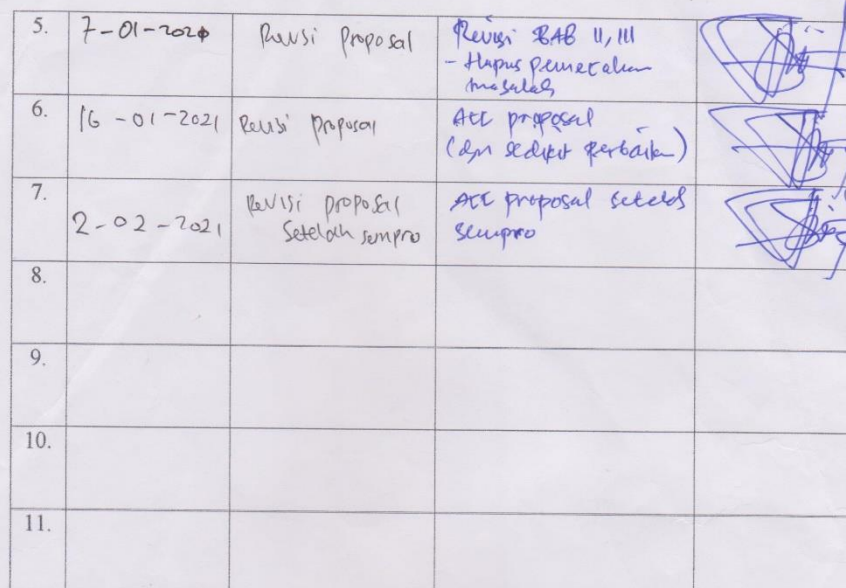 5.
7-01-2021
Revisi Proposal
Revisi BAB II, III
- Hapus pemecahan
masalah
6.
16-01-2021
Revisi Proposal
ACC proposal
(dgn sedikit perbaikan)
7.
2-02-2021
Revisi proposal
Setelah sempro
ACC proposal setelah
sempro
8.
9.
10.
11.